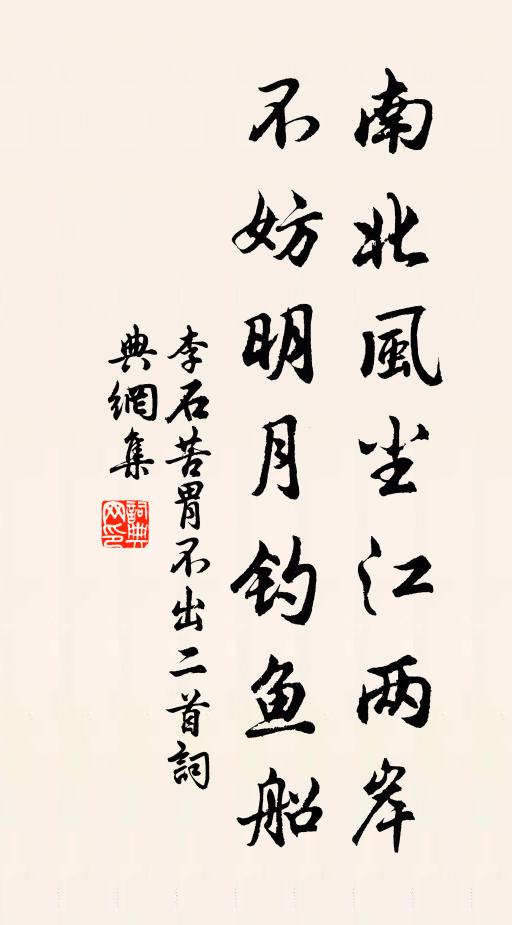 南北風尘江两岸
不妨明月钓鱼船
李石苦胃不出二首詞
典網集
詞典
网印